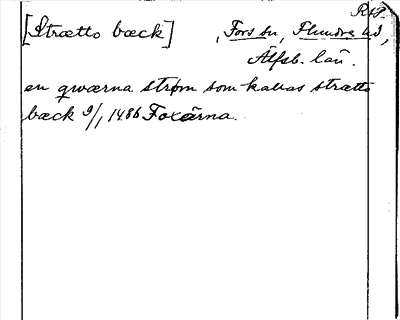 RAP
[Strætto bæck] , Fors sn, Flundre hd,
Älfsb. län.
en qwærna strøm som kallas strætto
bæck 9/1 1486 Foxärna.